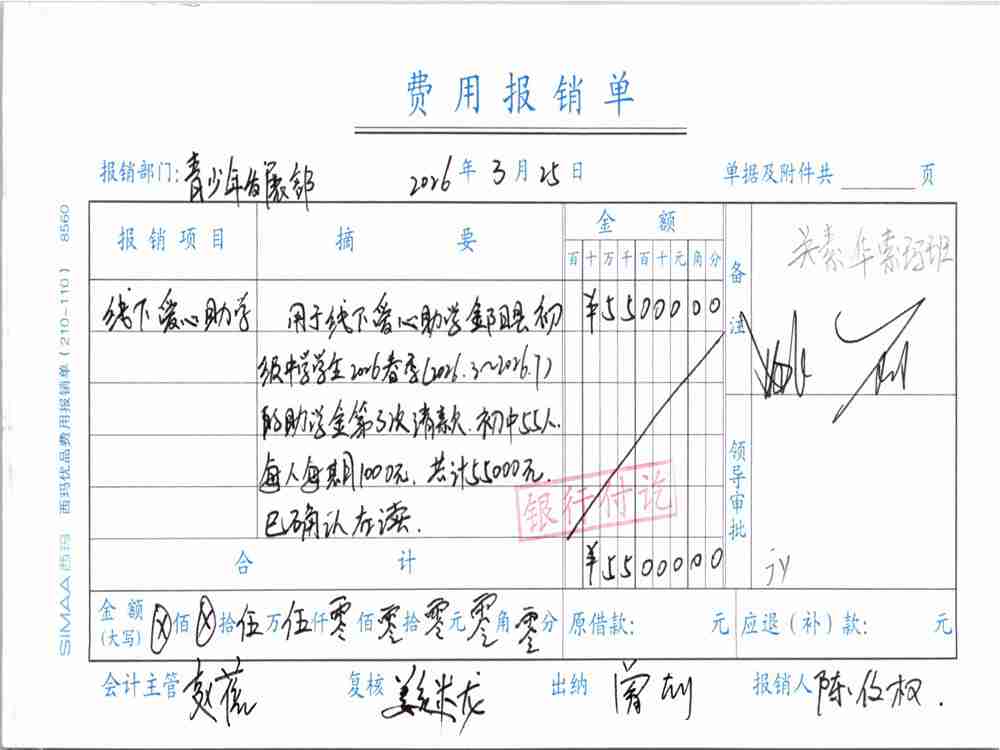 费用报销单
报销部门:青少年发展部 2026年3月25日 单据及附件共 页
报销项目 摘要 金额 备注
百十万千百十元角分
线下爱心助学 用于线下爱心助学 县初 ¥5500000
级中学学生2026春季(2026.3~2026.7)
的助学金第3次请款.初中55人.
每人每期1000元.共计55000元.
已确认在读.
银行付讫
领导审批
合计 ¥5500000
金额(大写) ⊗佰⊗拾伍万伍仟零佰零拾零元零角零分 原借款: 元 应退(补)款: 元
会计主管 复核 出纳 报销人 陈
SIMAA西玛 西玛优品费用报销单(210-110) 8560